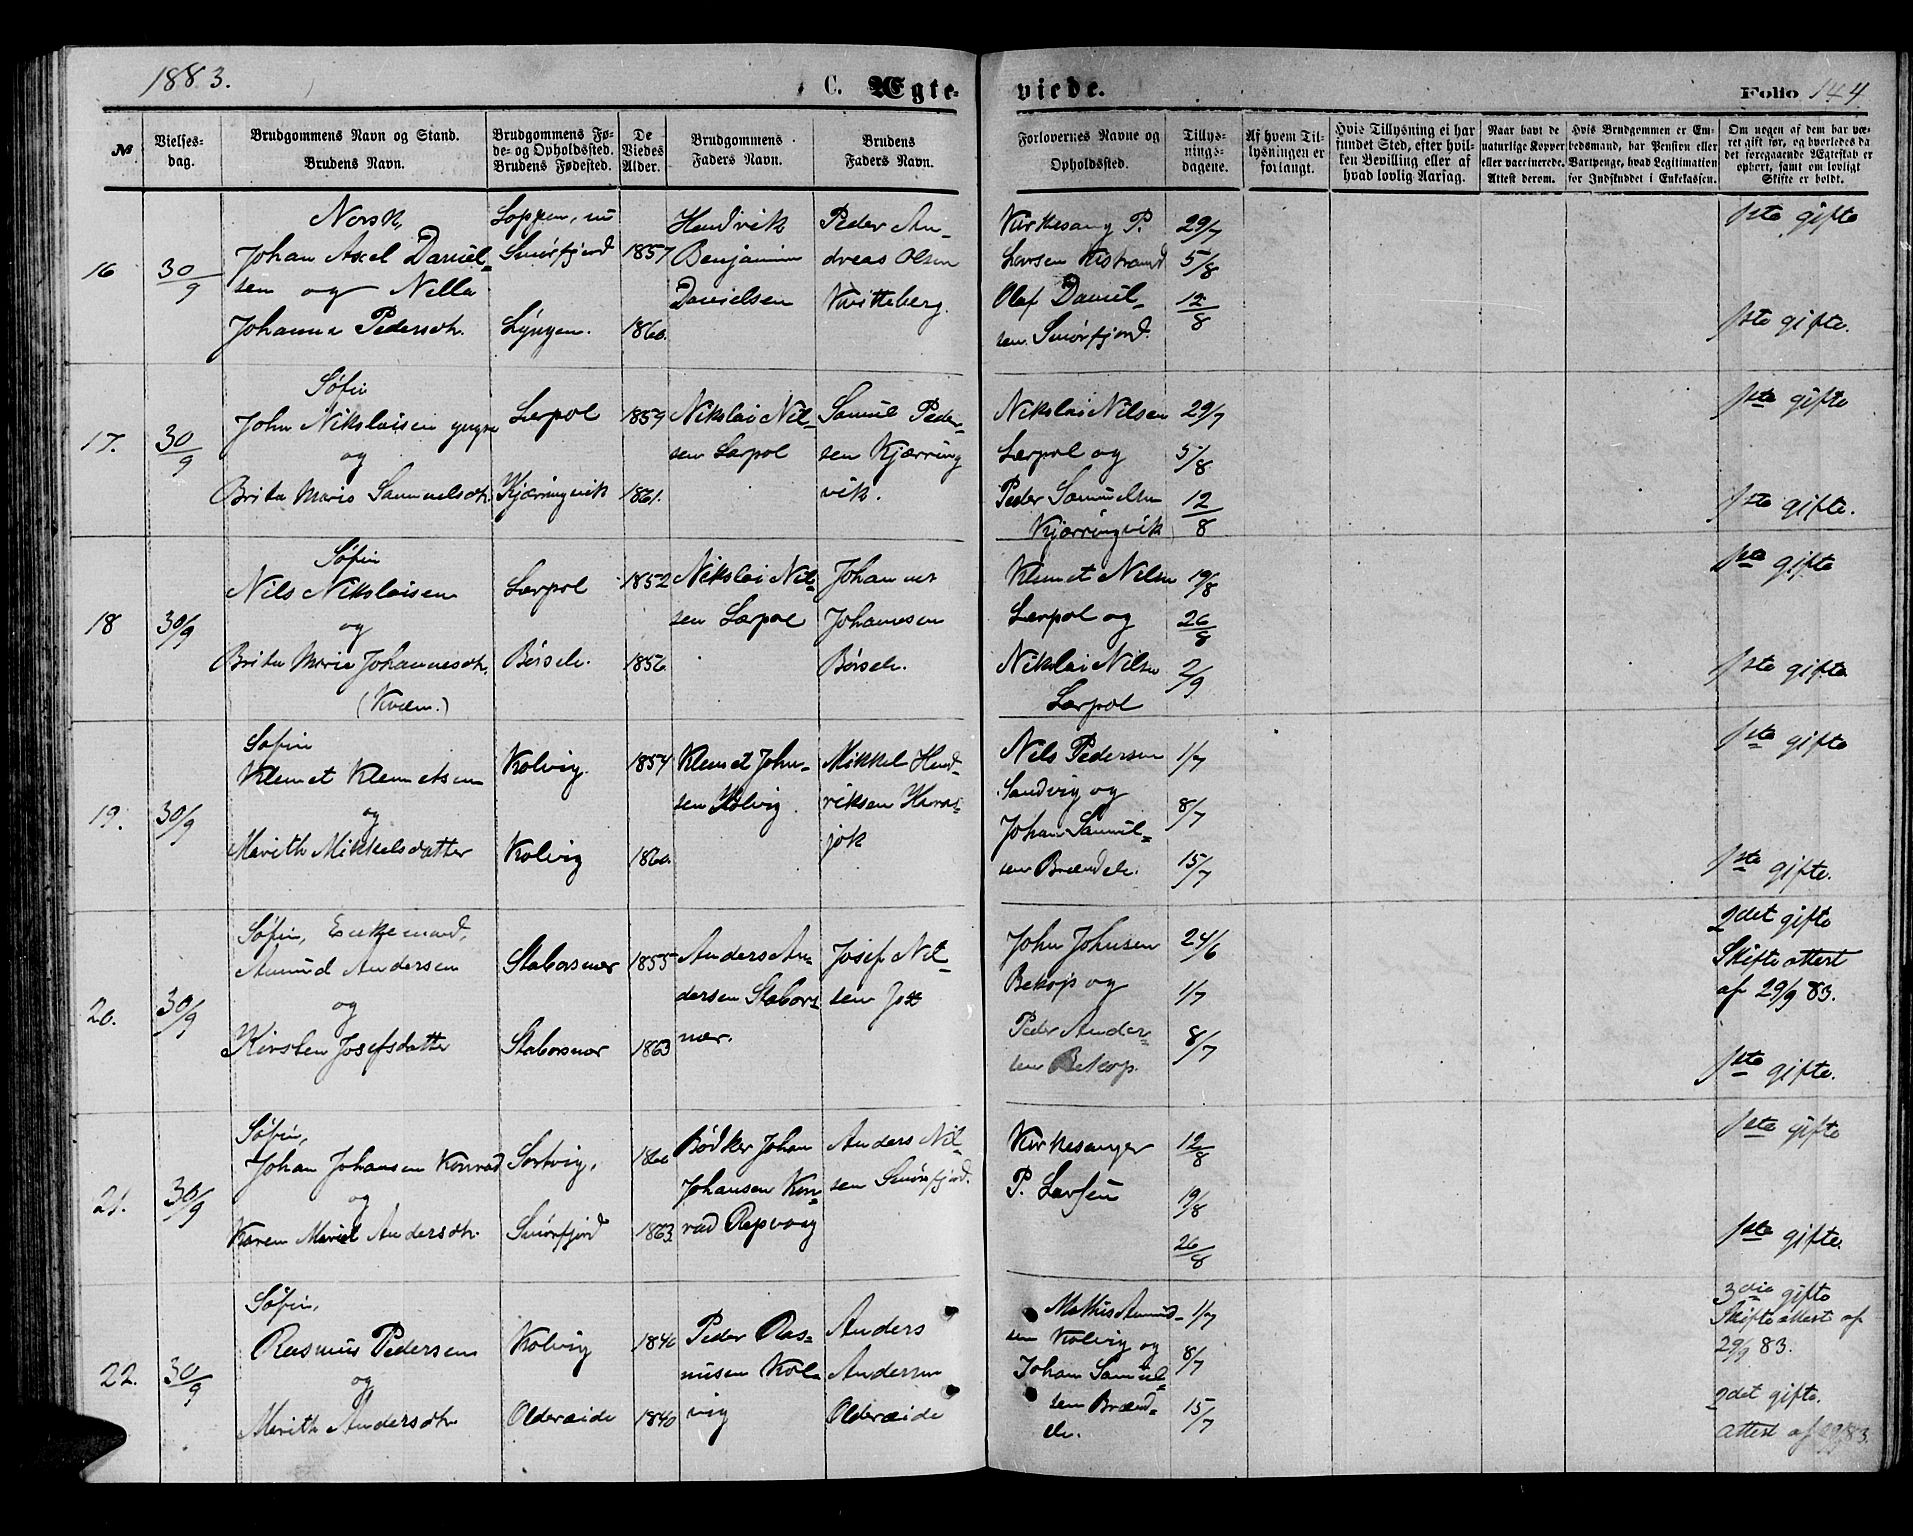 1883.
C. Ægte-
viede.
Folio 144
№
Vielses-
dag.
Brudgommens Navn og Stand.
Brudens Navn.
Brudgommens Fø-
de- og Opholdssted.
Brudens Fødested.
De
Viedes
Alder.
Brudgommens
Faders Navn.
Brudens
Faders Navn.
Forlovernes Navne og
Opholdssted.
Tillys-
nings-
dagene.
Af hvem Til-
lysningen er
forlangt.
Hvis Tillysning ei har
fundet Sted, efter hvil-
ken Bevilling eller af
hvad lovlig Aarsag.
Naar havt de
naturlige Kopper
eller vaccinerede.
Attest derom.
Hvis Brudgommen er Em-
bedsmand, har Pension eller
Vartpenge, hvad Legitimation
for Indskuddet i Enkekassen.
Om nogen af dem har væ-
ret gift før, og hvorledes da
det foregaaende Ægteskab er
ophørt, samt om lovligt
Skifte er holdt.
16
30/9
Norsk,
Johan Axel Daniel-
sen og Nella
Johanna Pedersdtr.
Loppen, nu
Smørfjord
Lyngen.
1857
1860.
Hendrik
Benjamin
Danielsen
Peder An-
dreas Olsen
Kvitteberg.
Kirkesang P.
Larsen Kistrand
Olaf Daniel-
sen Smørfjord.
29/7
5/8
12/8
1ste gifte
1ste gifte.
17.
30/9
Søfin
John Nikolaisen yngre
og
Brita Maria Samuelsdtr.
Lerpol
Kjærringvik
1859
1861.
Nikolai Nil-
sen Lærpol
Samuel Peder-
sen Kjærring
vik.
Nikolai Nilsen
Lærpol og
Peder Samuelsen
Kjærringvik
29/7
5/8
12/8
1ste gifte
1ste gifte.
18
30/9
Søfin
Nils Nikolaisen
og
Brita Marie Johannesdtr.
(Kvæn.)
Lærpol
Børsele.
1852
1856.
Nikolai Nil-
sen Lærpol
Johannes
Johannesen
Børsele.
Klemet Nilsen
Lærpol og
Nikolai Nilsen
Lærpol
19/8
26/8
2/9
1ste gifte
1ste gifte
19.
30/9
Søfin
Klemet Klemetsen
og
Marith Mikkelsdatter
Kolvig.
Kolvig
1854
1860.
Klemet John-
sen Kolvig.
Mikkel Hend-
riksen Karas-
jok
Nils Pedersen
Sandvig og
Johan Samuel-
sen Brændele.
1/7
8/7
15/7
1ste gifte
1ste gifte.
20.
30/9
Søfin, Enkemand,
Amund Andersen
og
Kirsten Josefsdatter
Staborsnær
Stabosnær
1855
1863
Anders An-
dersen Stabors-
nær.
Josef Nil-
sen
John Johnsen
Bekop og
Peder Ander-
sen Bekop.
24/6
1/7
8/7
2det gifte
Skifteattest
af 29/9 83.
1ste gifte.
21.
30/9
Søfin,
Johan Johansen Konrad
og
Karen Marie Andersdtr.
Sortvig,
Smørfjord
1860
1863
Bødker Johan
Johansen Kon-
rad Repvaag
Anders Nil-
sen Smørfjord.
Kirkesanger
P. Larsen
12/8
19/8
26/8
1ste gifte
1ste gifte.
22.
30/9
Søfin,
Rasmus Pedersen
og
Marith Andersdtr.
Kolvig
Oldereide
1840
1840
Peder Ras-
musen Kol-
vig
Anders
Andersen
Oldereide
Mathis Amund-
sen Kolvig og
Johan Samuel-
sen Brænd-
ele.
1/7
8/7
15/7
3die gifte
Skifteattest af
29/9 83.
2det gifte.
Attest af 29/9 83.